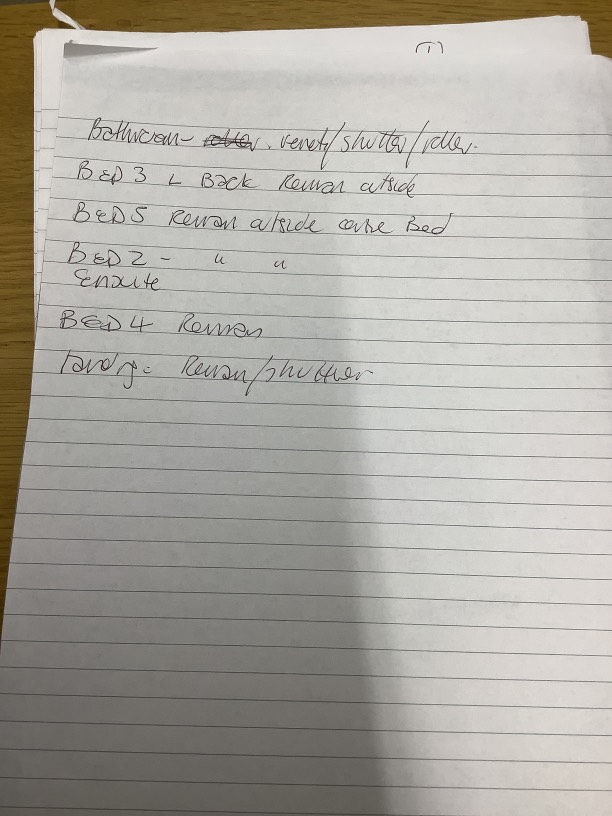 (1)
Bathroom - roller. venet/shutter/roller.
BED 3 L Back Roman outside
BED 5 Roman outside above Bed
BED 2 - " "
Ensuite
BED 4 Roman
Landg = Roman/shutter